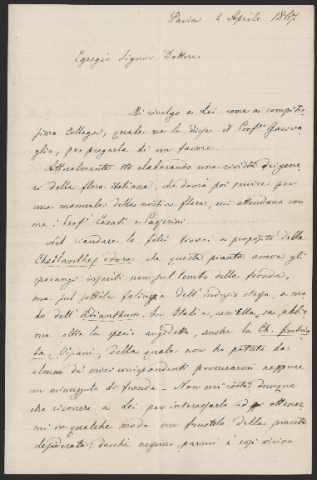 Pavia 2 Aprile 1867.
Egregio Signor Dottore
Mi rivolgo a lei come a compitis-
simo Collega, quale me la disse il Prof. Garova-
glio, per pregarla di un favore.
Attualmente sto elaborando una rivista dei gene-
ri della flora italiana, che dovrà poi servire per
una manuale della nostra flora, cui attendono con
me i Prof. Cesati e Passerini.
Nel riandare le felci trovai a proposito della
Cheilanthes odora che questa pianta aveva gli
sporangi inseriti non sul lembo della fronda,
ma sul sottile dell'indusio stesso, a mo-
do dell'Adianthum. In Italia, con ella, sa abbia-
mo oltre la specie anzidetta, anche la Ch. 
Visiani, della quale non ho potuto da
alcuno dei miei corrispondenti procurarmi neppure
un minuzzolo di fronda. Non mi resta dunque
che ricorrere a lei per interessarla ad ottener-
mi in qualche modo un frustolo della pianta
desiderata, dacchè neguno, parmi è così vicino